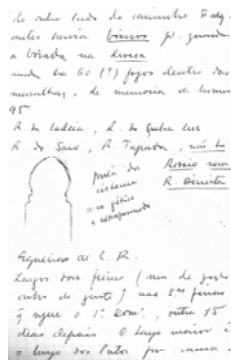 do outro lado do caminho
havia viveiros p. guardar
a boiada na devesa
ainda ha 60 (?) fogos dentro das
muralhas, de memoria de homem
95
R. da Cadeia, R. do Quebra
R. do Saco, R. Tapada,
Rossio
R. Direita
porta da
cisterna
arco gótico
e ultrapassado
Figueira de C. R.
Largos das feiras (um de gado
outro de gente) nas feiras
q segue o 1º Dom., outra 15
dias depois O largo maior é
o largo dos Patos por causa